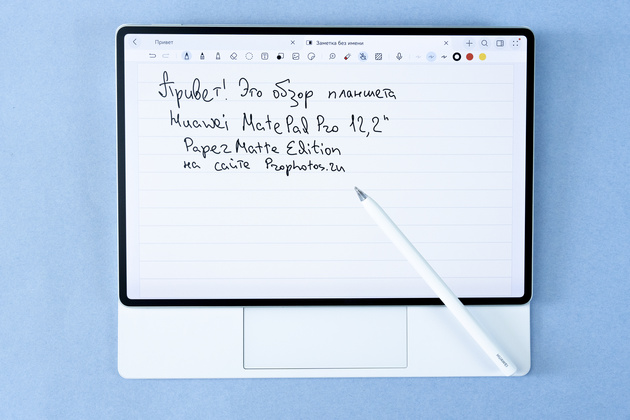 Привет
Заметка без имени
Привет! Это обзор планшета
Huawei MatePad Pro 12,2"
Paper Matte Edition
на сайте Prophotos.ru
HUAWEI